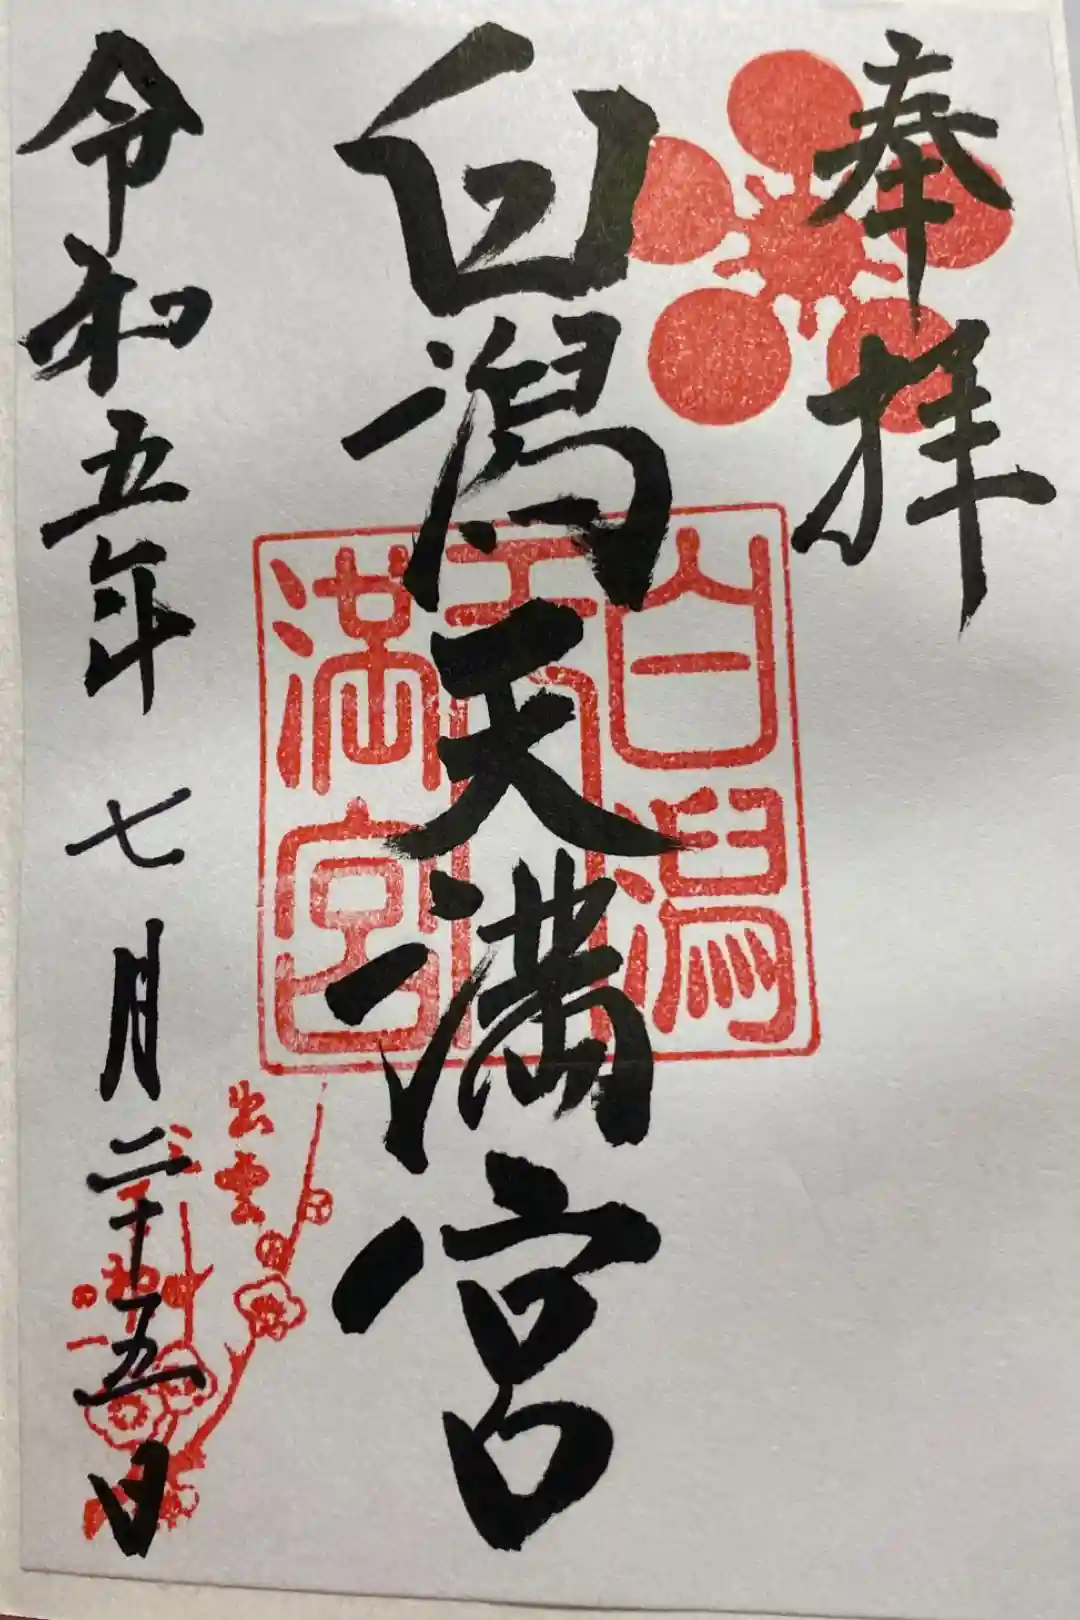 奉拝
白潟天満宮
白潟
天
満宮
令和五年 七月二十五日
出雲